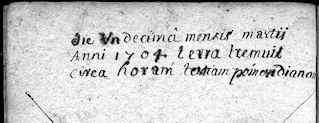 die Undecimâ mensis martii
Anni 1704 terra tremuit
Circa horam tertiam pomeridianam